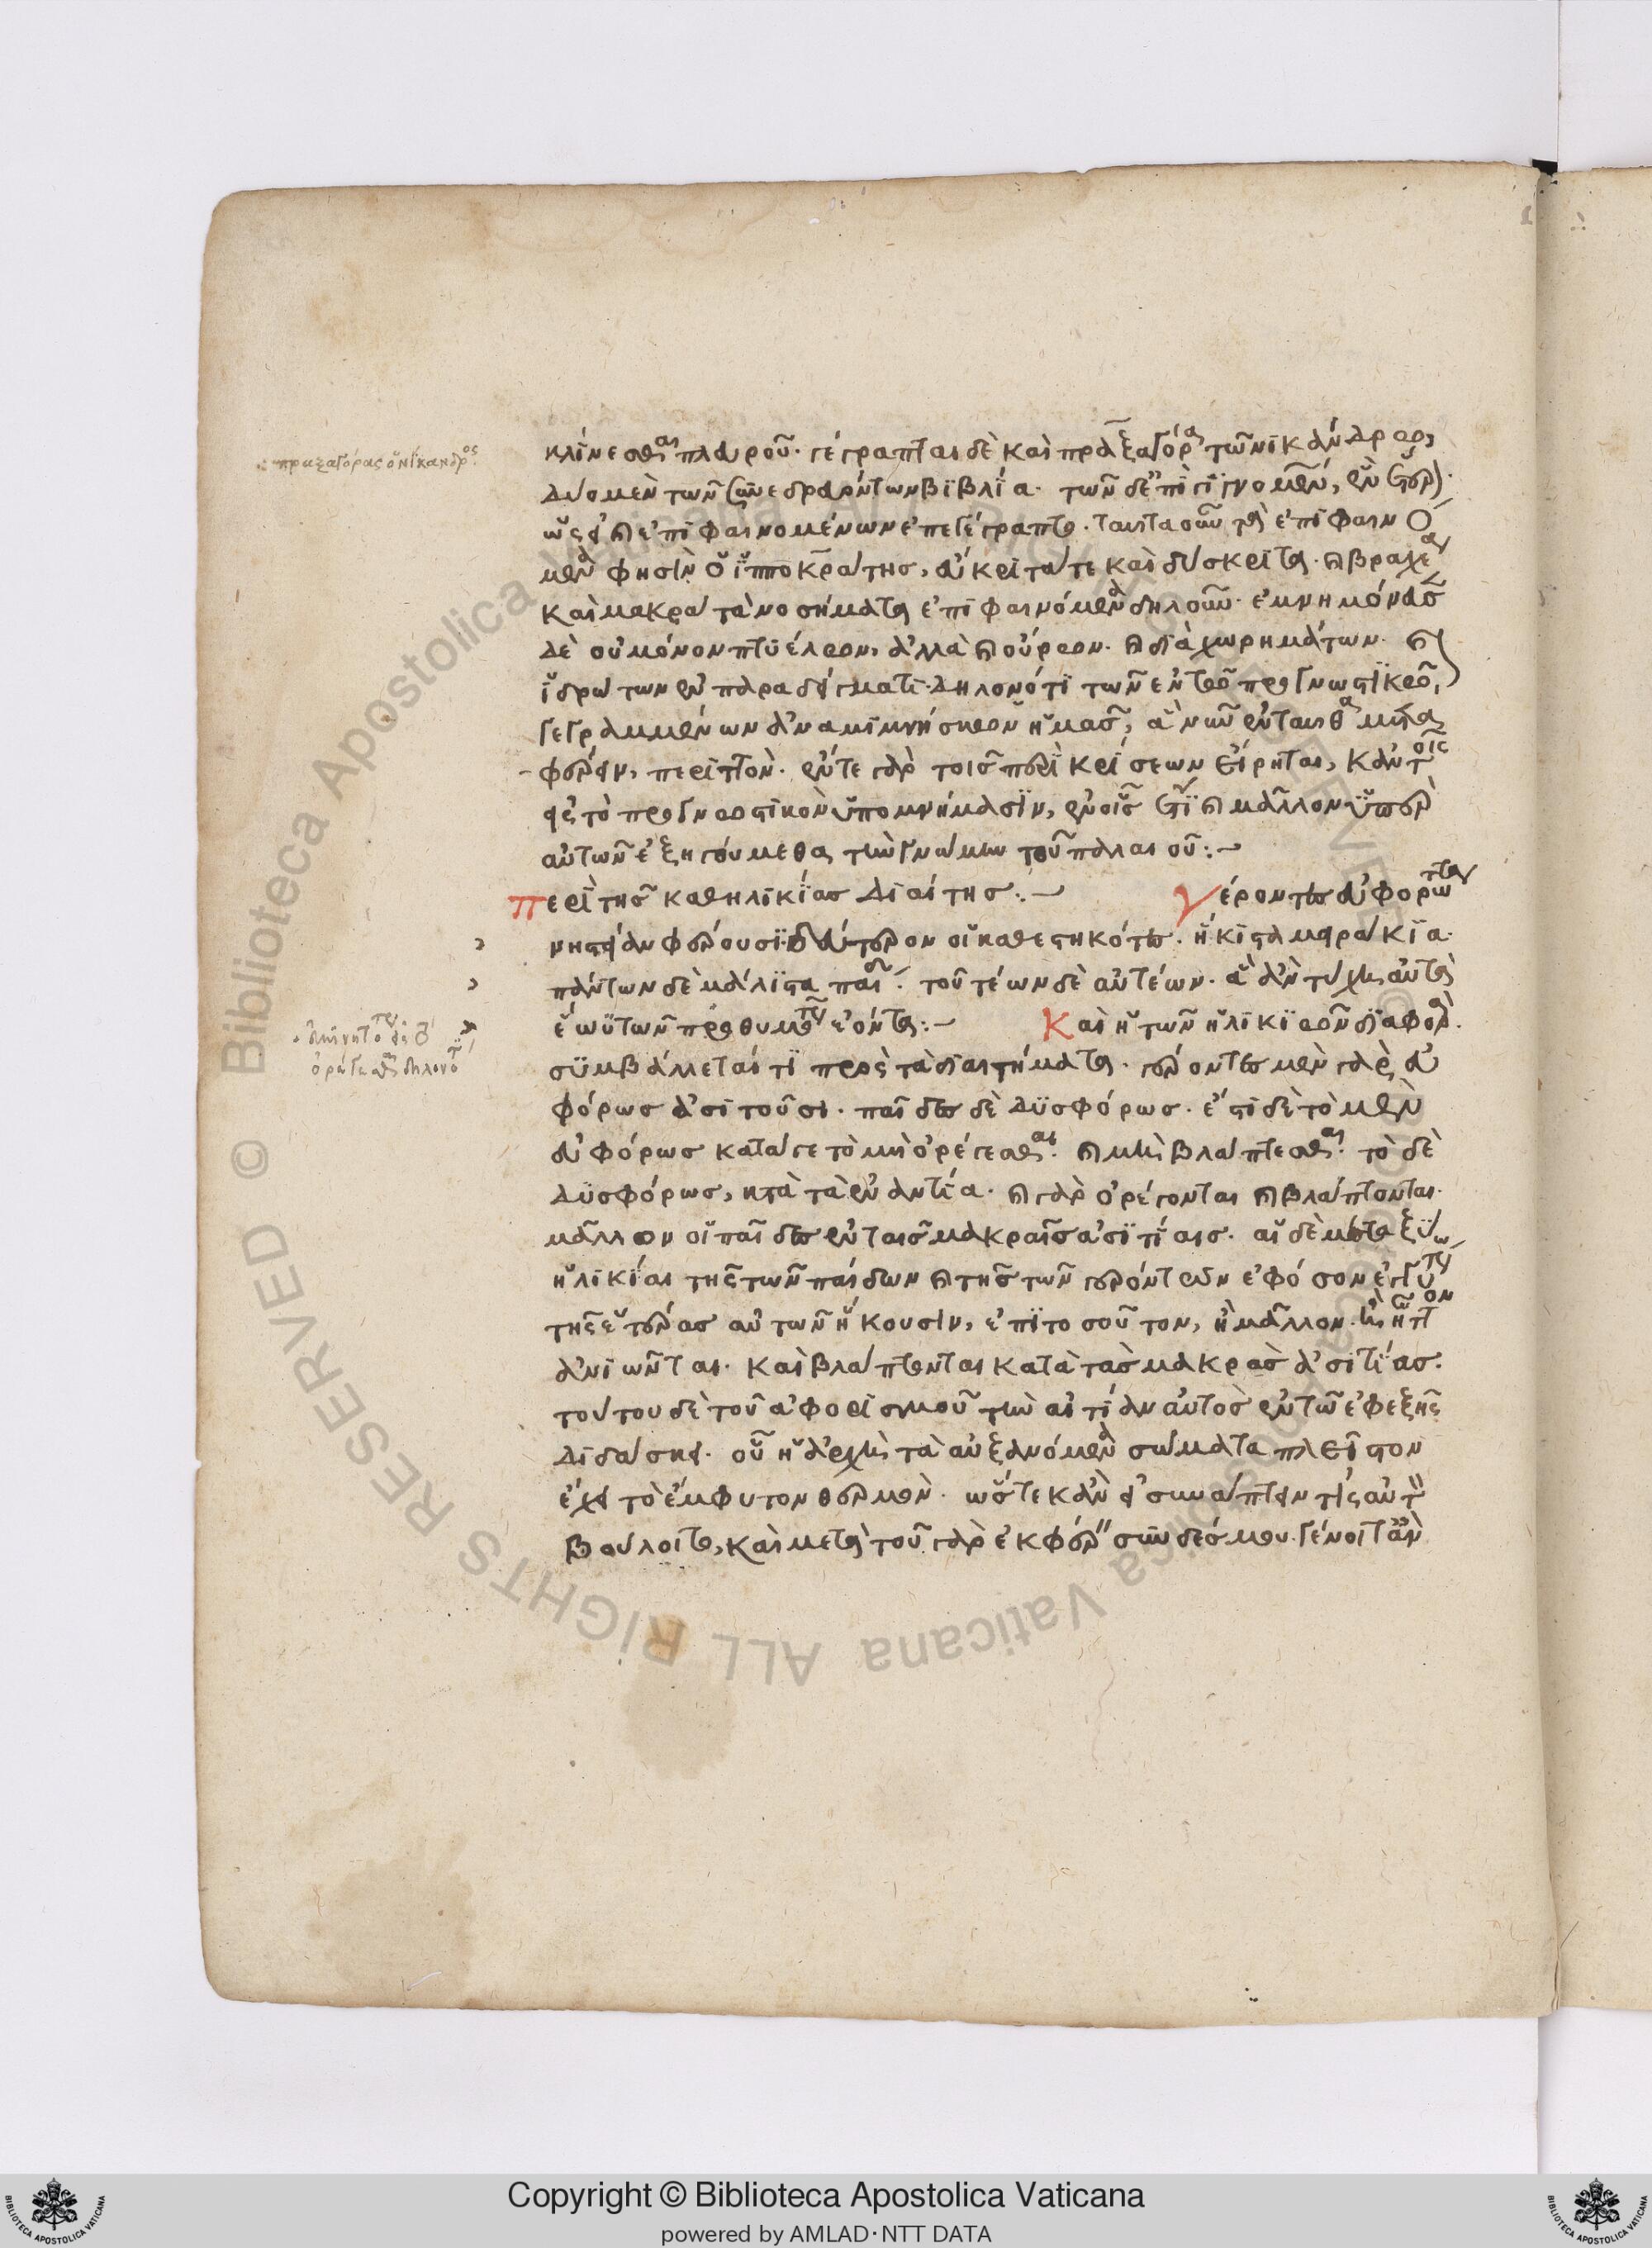 πραξαγόρας ὁ νίκανδρος
κλίνεσθαι πλευροῦ. γέγραπται δὲ καὶ πραξαγόρα τῶ νικάνδρου,
δύο μὲν τῶν συνεδρευόντων βιβλία. τῶν δ' ἐπιγιγνομένων, ἓν ἕτερον.
ἐπιφαινομένων ἐπεγέγραπτο. ταῦτα οὖν τὰ ἐπιφαινό
μενα φησὶν ὁ ἱπποκράτης, εὔκριτά τε καὶ δύσκριτα. καὶ βραχέα
καὶ μακρὰ τὰ νοσήματα ἐπιφαινόμενα δηλοῦν. ἐμνημόνευσε
δὲ οὐ μόνον πτυέλου, ἀλλὰ καὶ οὔρου. καὶ διαχωρημάτων. καὶ
ἱδρώτων ἐν παραδείγματι. δηλονότι τῶν ἐν τῶ προγνωστικῶ,
γεγραμμένων ἀναμιμνήσκων ἡμᾶς, ἃ νῦν ἐνταῦθα μετα
φέρειν, περιττὸν. ἔν τε γὰρ τοῖς περὶ κρίσεων εἴρηται, κἀν τοῖς
εἰς τὸ προγνωστικὸν ὑπομνήμασιν, ἐν οἷς ἔτι καὶ μᾶλλον ὑπὲρ
αὐτῶν ἐξηγούμεθα τὴν γνώμην τοῦ παλαιοῦ:
περὶ τῆς καθ' ἡλικίας διαίτης: γέροντες εὐφορώτατα
νηστείαν φέρουσι. δεύτερον οἱ καθεστηκότες. ἥκιστα μειράκια.
πάντων δὲ μάλιστα παιδία. τουτέων δὲ αὐτέων. ἃ ἂν τύχη αὐτὰ
ἑωυτῶν προθυμότερα ἐόντα: Καὶ ἡ τῶν ἡλικιῶν διαφορὰ.
συμβάλλεταί τι πρὸς τὰ διαιτήματα. γέροντες μὲν γὰρ εὐ
φόρως ἀσιτοῦσι. παῖδες δὲ δυσφόρως. ἔστι δὲ τὸ μὲν
εὐφόρως κατά γε τὸ μὴ ὀρέγεσθαι. καὶ μὴ βλάπτεσθαι. τὸ δὲ
δυσφόρως, κατὰ τὰ ἐναντία. καὶ γὰρ ὀρέγονται καὶ βλάπτονται
μᾶλλον οἱ παῖδες ἐν ταῖς μακραῖς ἀσιτίαις. αἱ δὲ μεταξὺ
ἡλικίαι τῆς τῶν παίδων καὶ τῆς τῶν γερόντων ἐφόσον ἐγγυτέρω
τῆς ἑτέρας αὐτῶν ἥκουσιν, ἐπιτοσοῦτον, ἢ μᾶλλον. ἢ ἧττον
ἀνιῶνται. καὶ βλάπτονται κατὰ τὰς μακρὰς ἀσιτίας.
τούτου δὲ τοῦ ἀφορισμοῦ τὴν αἰτίαν αὐτὸς ἐν τῶ ἐφεξῆς
διδάσκει. οὗ ἡ ἀρχὴ τὰ αὐξανόμενα σώματα πλεῖστον
ἔχει τὸ ἔμφυτον θερμὸν. ὥστε κἂν εἰ συνάπτειν τίς αὐτὰ
βούλοιτο, καὶ μετὰ τοῦ γὰρ ἐκφέρειν συνδέσμου. γένοιτ' ἂν